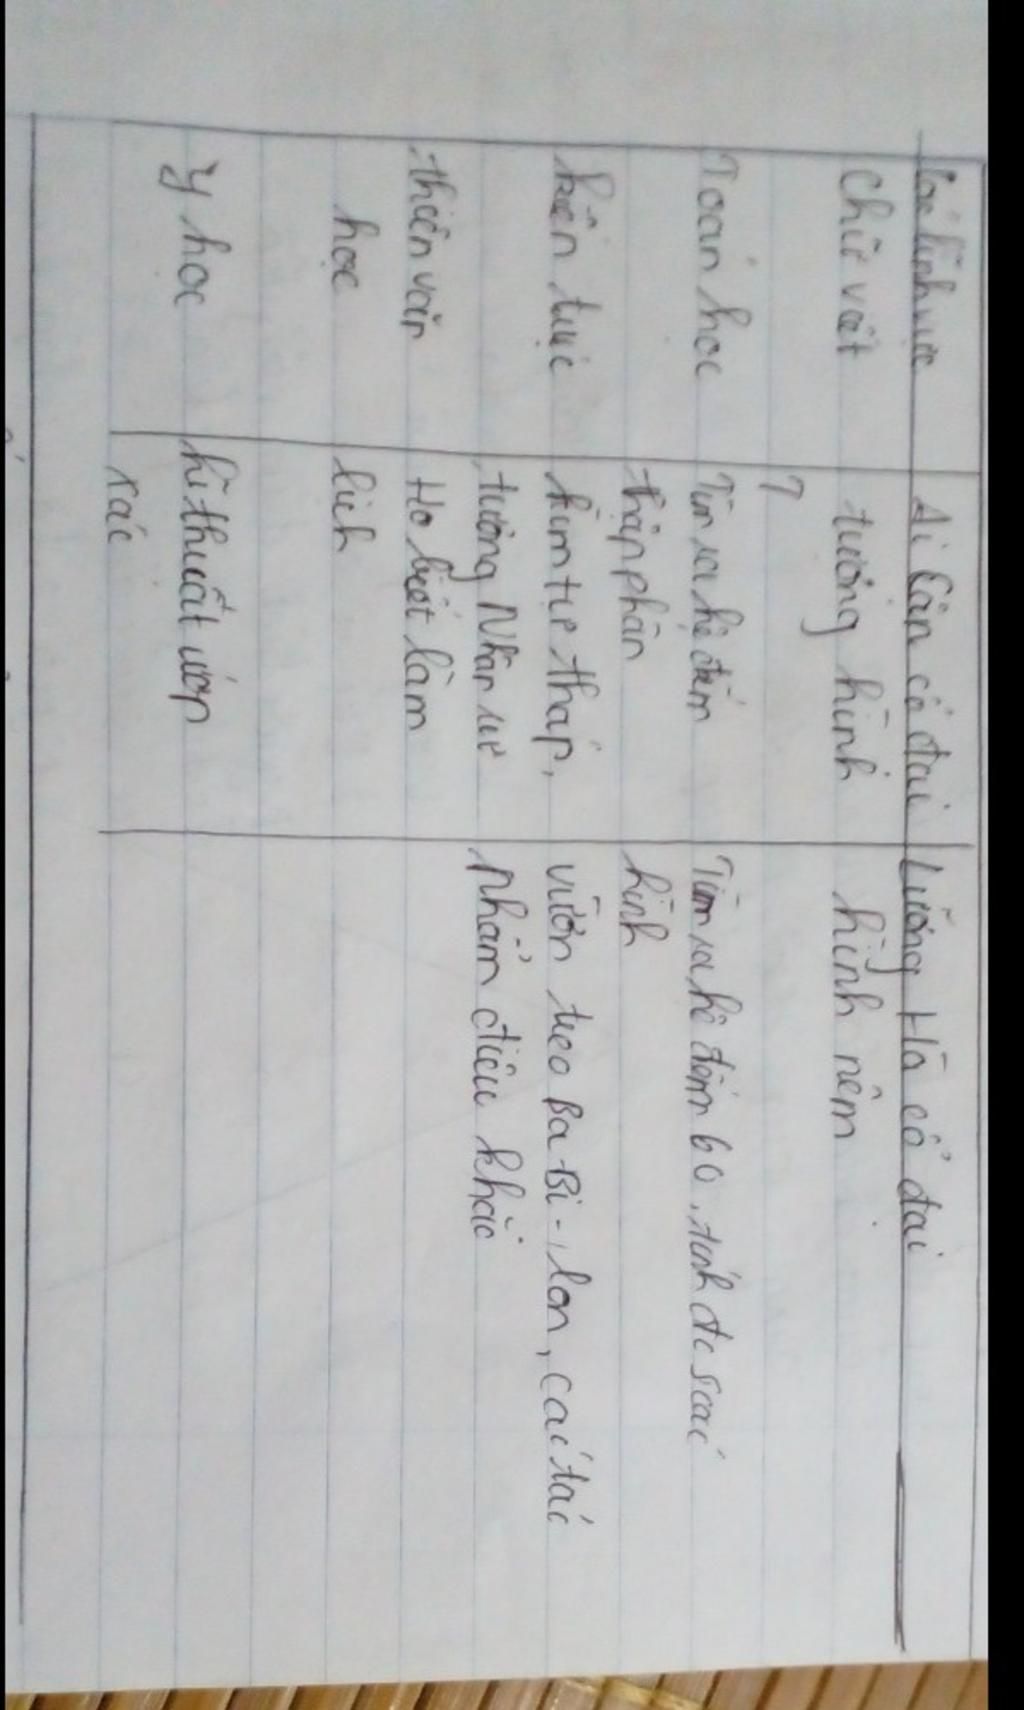 Các lĩnh vực Ai Cập cổ đại Lưỡng Hà cổ đại
Chữ viết tượng hình hình nêm
Toán học Tìm ra hệ đếm Tìm ra hệ đếm 60, tính được các
thập phân hình
kiến trúc kim tự tháp, vườn treo Ba-Bi-lon, các tác
tượng Nhân sư phẩm điêu khắc
thiên văn Họ biết làm
học lịch
y học kĩ thuật ướp
xác